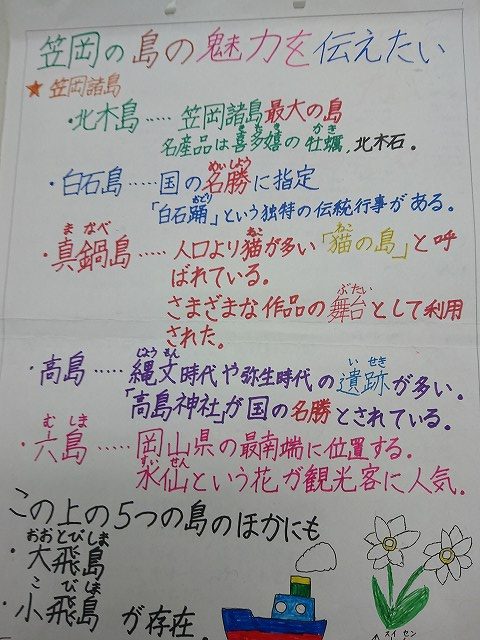 笠岡の島の魅力を伝えたい
★笠岡諸島
・北木島……笠岡諸島最大の島
名産品は喜多嬉の牡蠣、北木石。
・白石島……国の名勝に指定
「白石踊」という独特の伝統行事がある。
・真鍋島……人口より猫が多い「猫の島」と呼
ばれている。
さまざまな作品の舞台として利用
された。
・高島……縄文時代や弥生時代の遺跡が多い。
「高島神社」が国の名勝とされている。
・六島……岡山県の最南端に位置する。
水仙という花が観光客に人気。
この上の5つの島のほかにも
・大飛島
・小飛島が存在。
スイセン